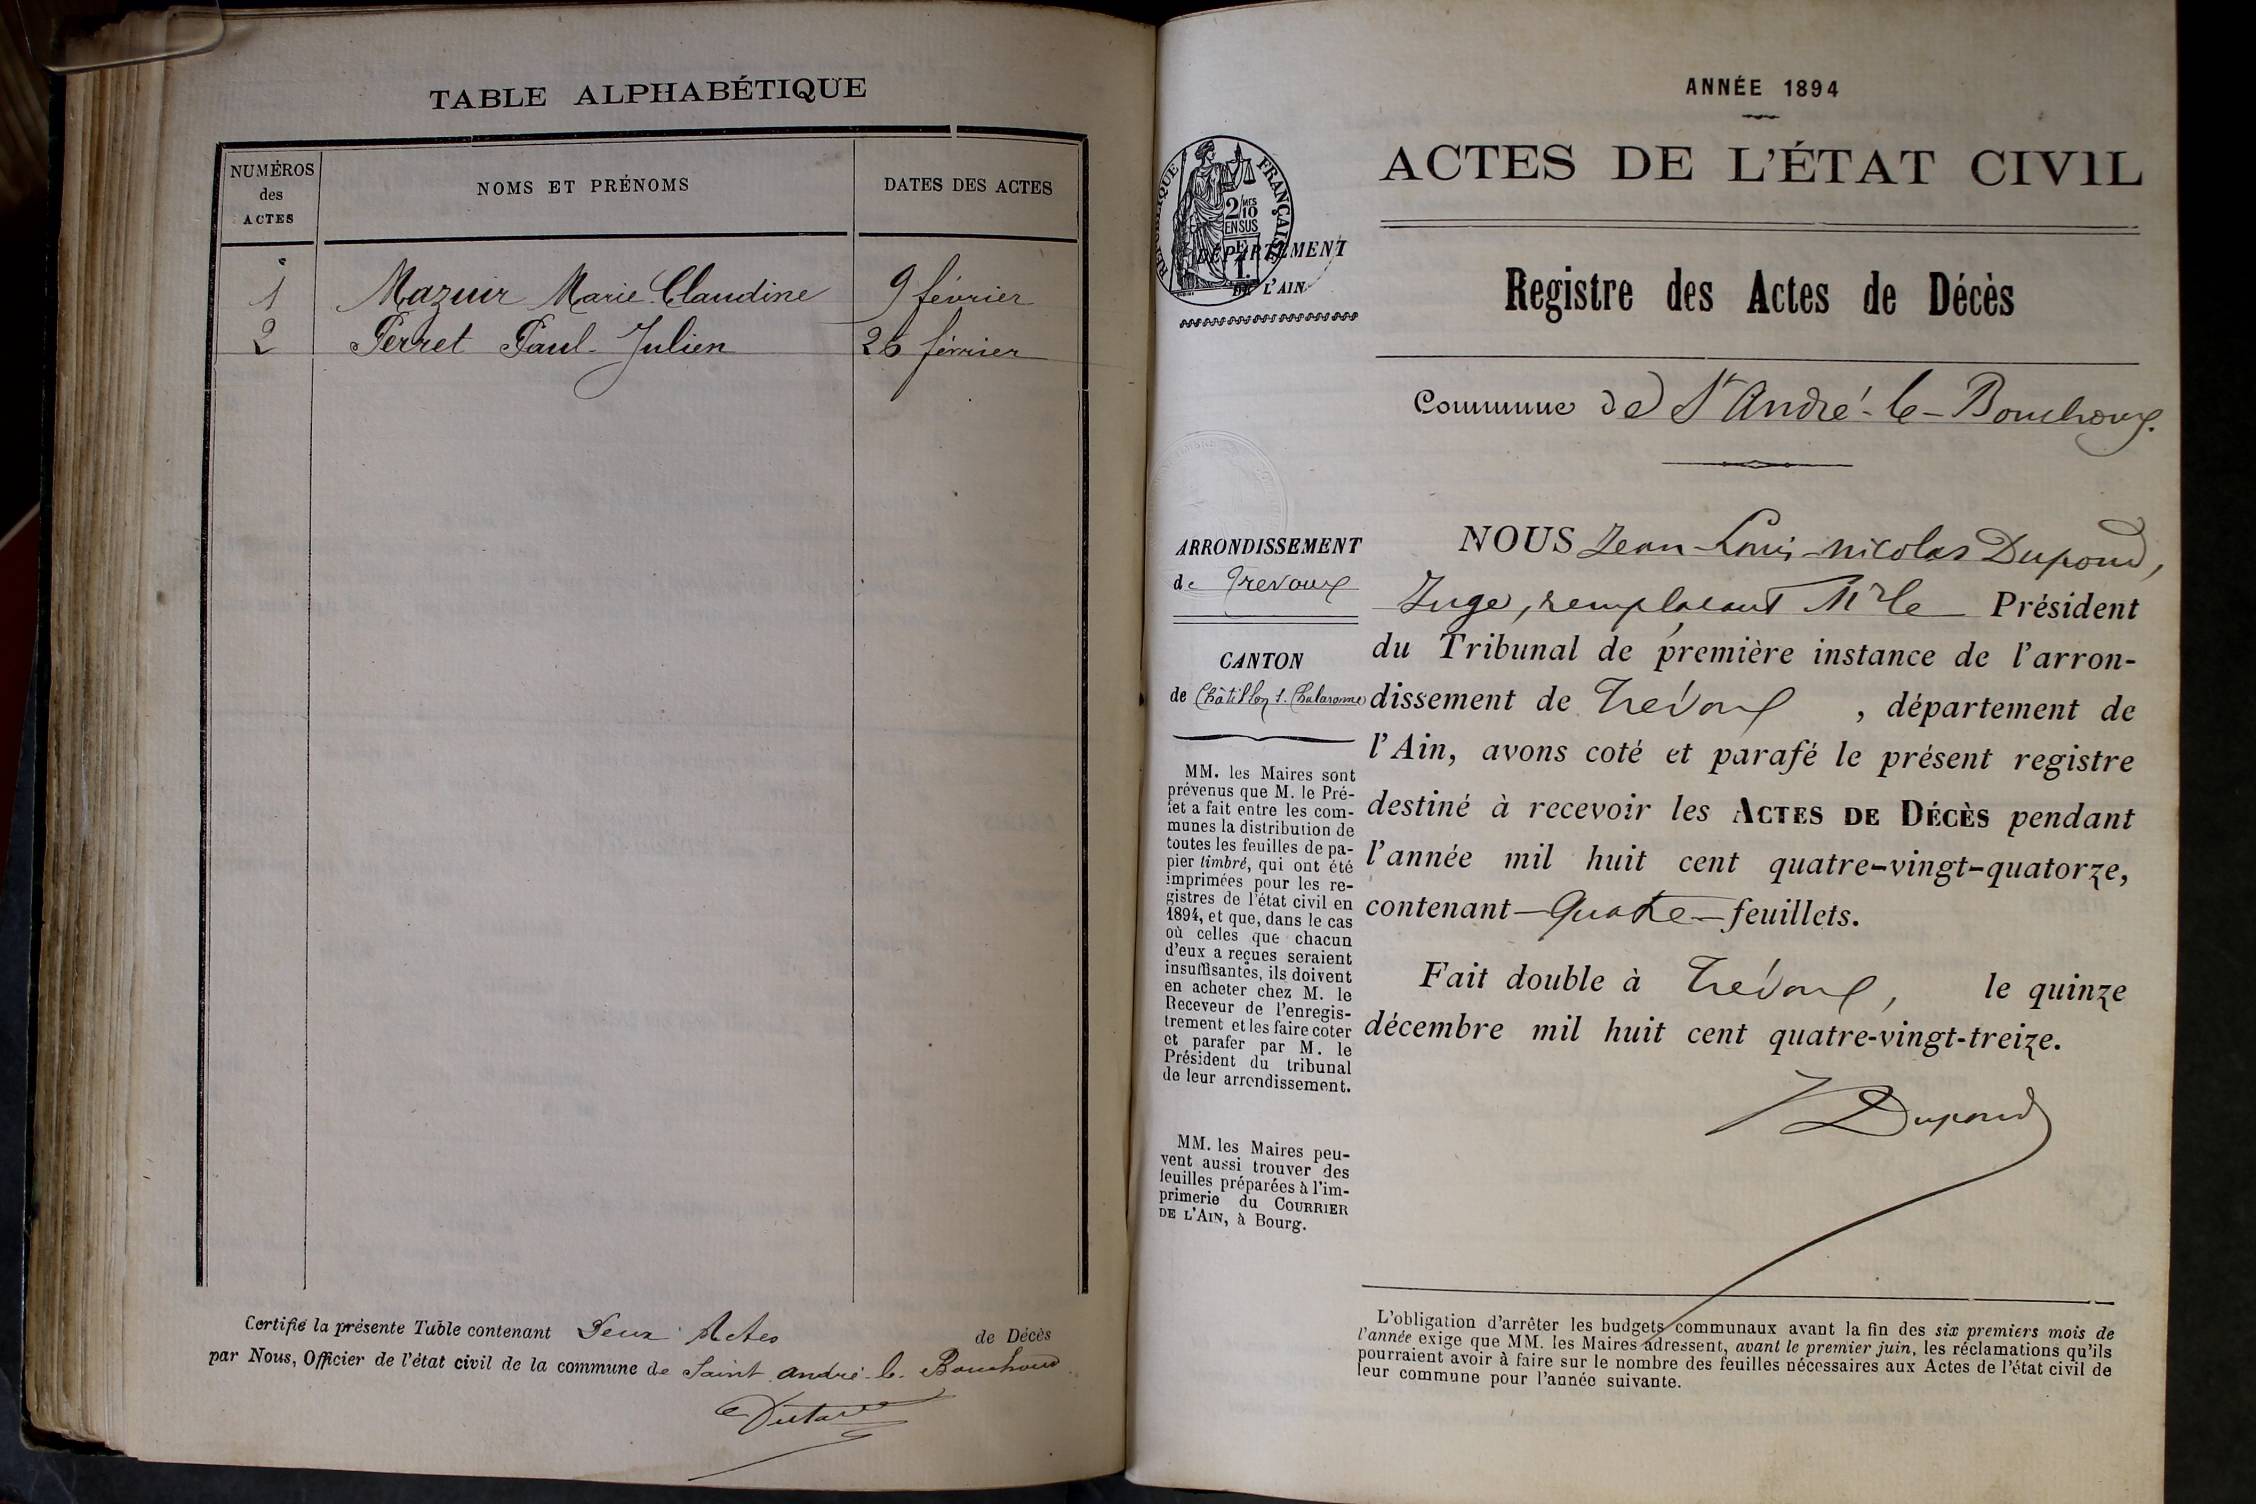 TABLE ALPHABÉTIQUE
NUMÉROS
des
ACTES
NOMS ET PRÉNOMS
DATES DES ACTES
1 Mazuir Marie Claudine 9 février
2 Perret Paul Julien 26 février
Certifié la présente Table contenant Deux Actes de Décès
par Nous, Officier de l'état civil de la commune de Saint André-le-Bouchoux
ANNÉE 1894
ACTES DE L'ÉTAT CIVIL
RÉPUBLIQUE FRANÇAISE
2/10
MES
EN SUS
DÉPARTEMENT
DE L'AIN
Registre des Actes de Décès
Commune de St André-le-Bouchoux.
ARRONDISSEMENT
de Trevoux
CANTON
de Châtillon s. Chalaronne
MM. les Maires sont
prévenus que M. le Pré-
fet a fait entre les com-
munes la distribution de
toutes les feuilles de pa-
pier timbré, qui ont été
imprimées pour les re-
gistres de l'état civil en
1894, et que, dans le cas
où celles que chacun
d'eux a reçues seraient
insuffisantes, ils doivent
en acheter chez M. le
Receveur de l'enregis-
trement et les faire coter
et parafer par M. le
Président du tribunal
de leur arrondissement.
MM. les Maires peu-
vent aussi trouver des
feuilles préparées à l'im-
primerie du COURRIER
DE L'AIN, à Bourg.
NOUS Jean-Louis-Nicolas Dupond,
Juge, remplaçant Mr le Président
du Tribunal de première instance de l'arron-
dissement de Trévoux, département de
l'Ain, avons coté et parafé le présent registre
destiné à recevoir les ACTES DE DÉCÈS pendant
l'année mil huit cent quatre-vingt-quatorze,
contenant quatre feuillets.
Fait double à Trévoux, le quinze
décembre mil huit cent quatre-vingt-treize.
Dupond
L'obligation d'arrêter les budgets communaux avant la fin des six premiers mois de
l'année exige que MM. les Maires adressent, avant le premier juin, les réclamations qu'ils
pourraient avoir à faire sur le nombre des feuilles nécessaires aux Actes de l'état civil de
leur commune pour l'année suivante.